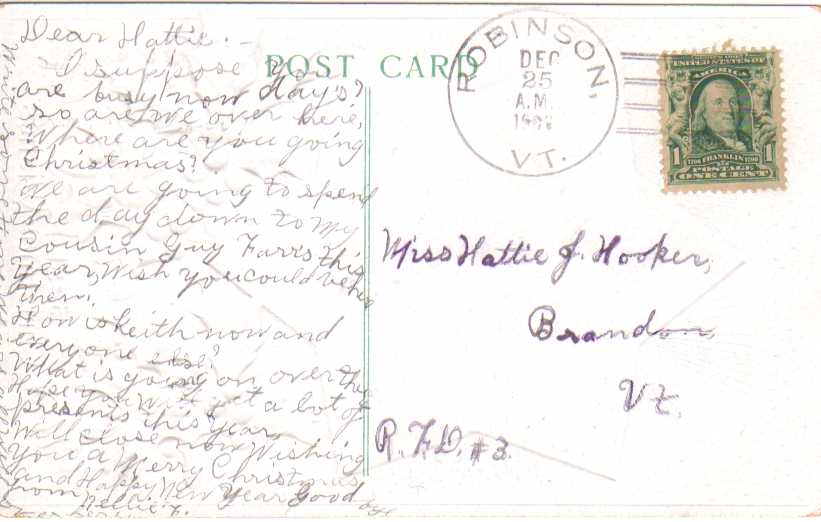 Dear Hattie. —
I suppose you
are busy now days?
so are we over here,
Where are you going
Christmas?
We are going to spend
the day down to my
Cousin Guy Farr's this
Year, Wish you could be
then.
How is Keith now and
everyone else?
What is going on over
Hope you will get a lot of
presents this year,
Will close now Wishing
you a Merry Christmas
and Happy New Year Good
from Nellie F.
POST CARD
ROBINSON,
DEC
25
A.M.
VT.
UNITED STATES OF
AMERICA
1 FRANKLIN 1
POSTAGE
ONE CENT
Miss Hattie J. Hooker,
Brandon,
Vt.
R.F.D. #3.